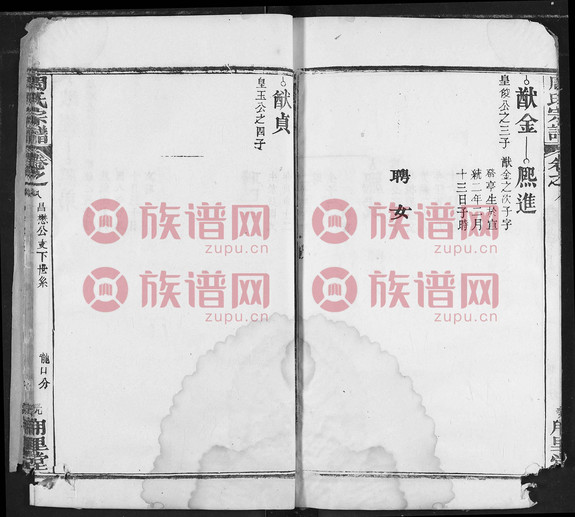 周氏宗譜
猷金
皇發公之三子
熙進
猷金之次子字
癸亭生於宣
統二年三月
十三日子時
聘 女
猷貞
皇玉公之四子
周氏宗譜
昌懋公支下世系
龍口分
族谱网
zupu.cn
族谱网
zupu.cn
族谱网
zupu.cn
族谱网
zupu.cn